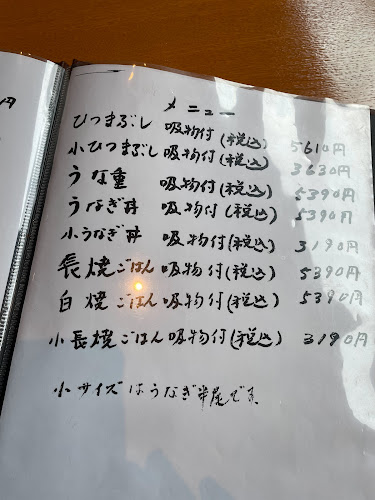 メニュー
ひつまぶし 吸物付(税込) 5610円
小ひつまぶし 吸物付(税込) 3630円
うな重 吸物付(税込) 5390円
うなぎ丼 吸物付(税込) 5390円
小うなぎ丼 吸物付(税込) 3190円
長焼ごはん 吸物付(税込) 5390円
白焼ごはん 吸物付(税込) 5390円
小長焼ごはん 吸物付(税込) 3190円
小サイズはうなぎ半尾です
円